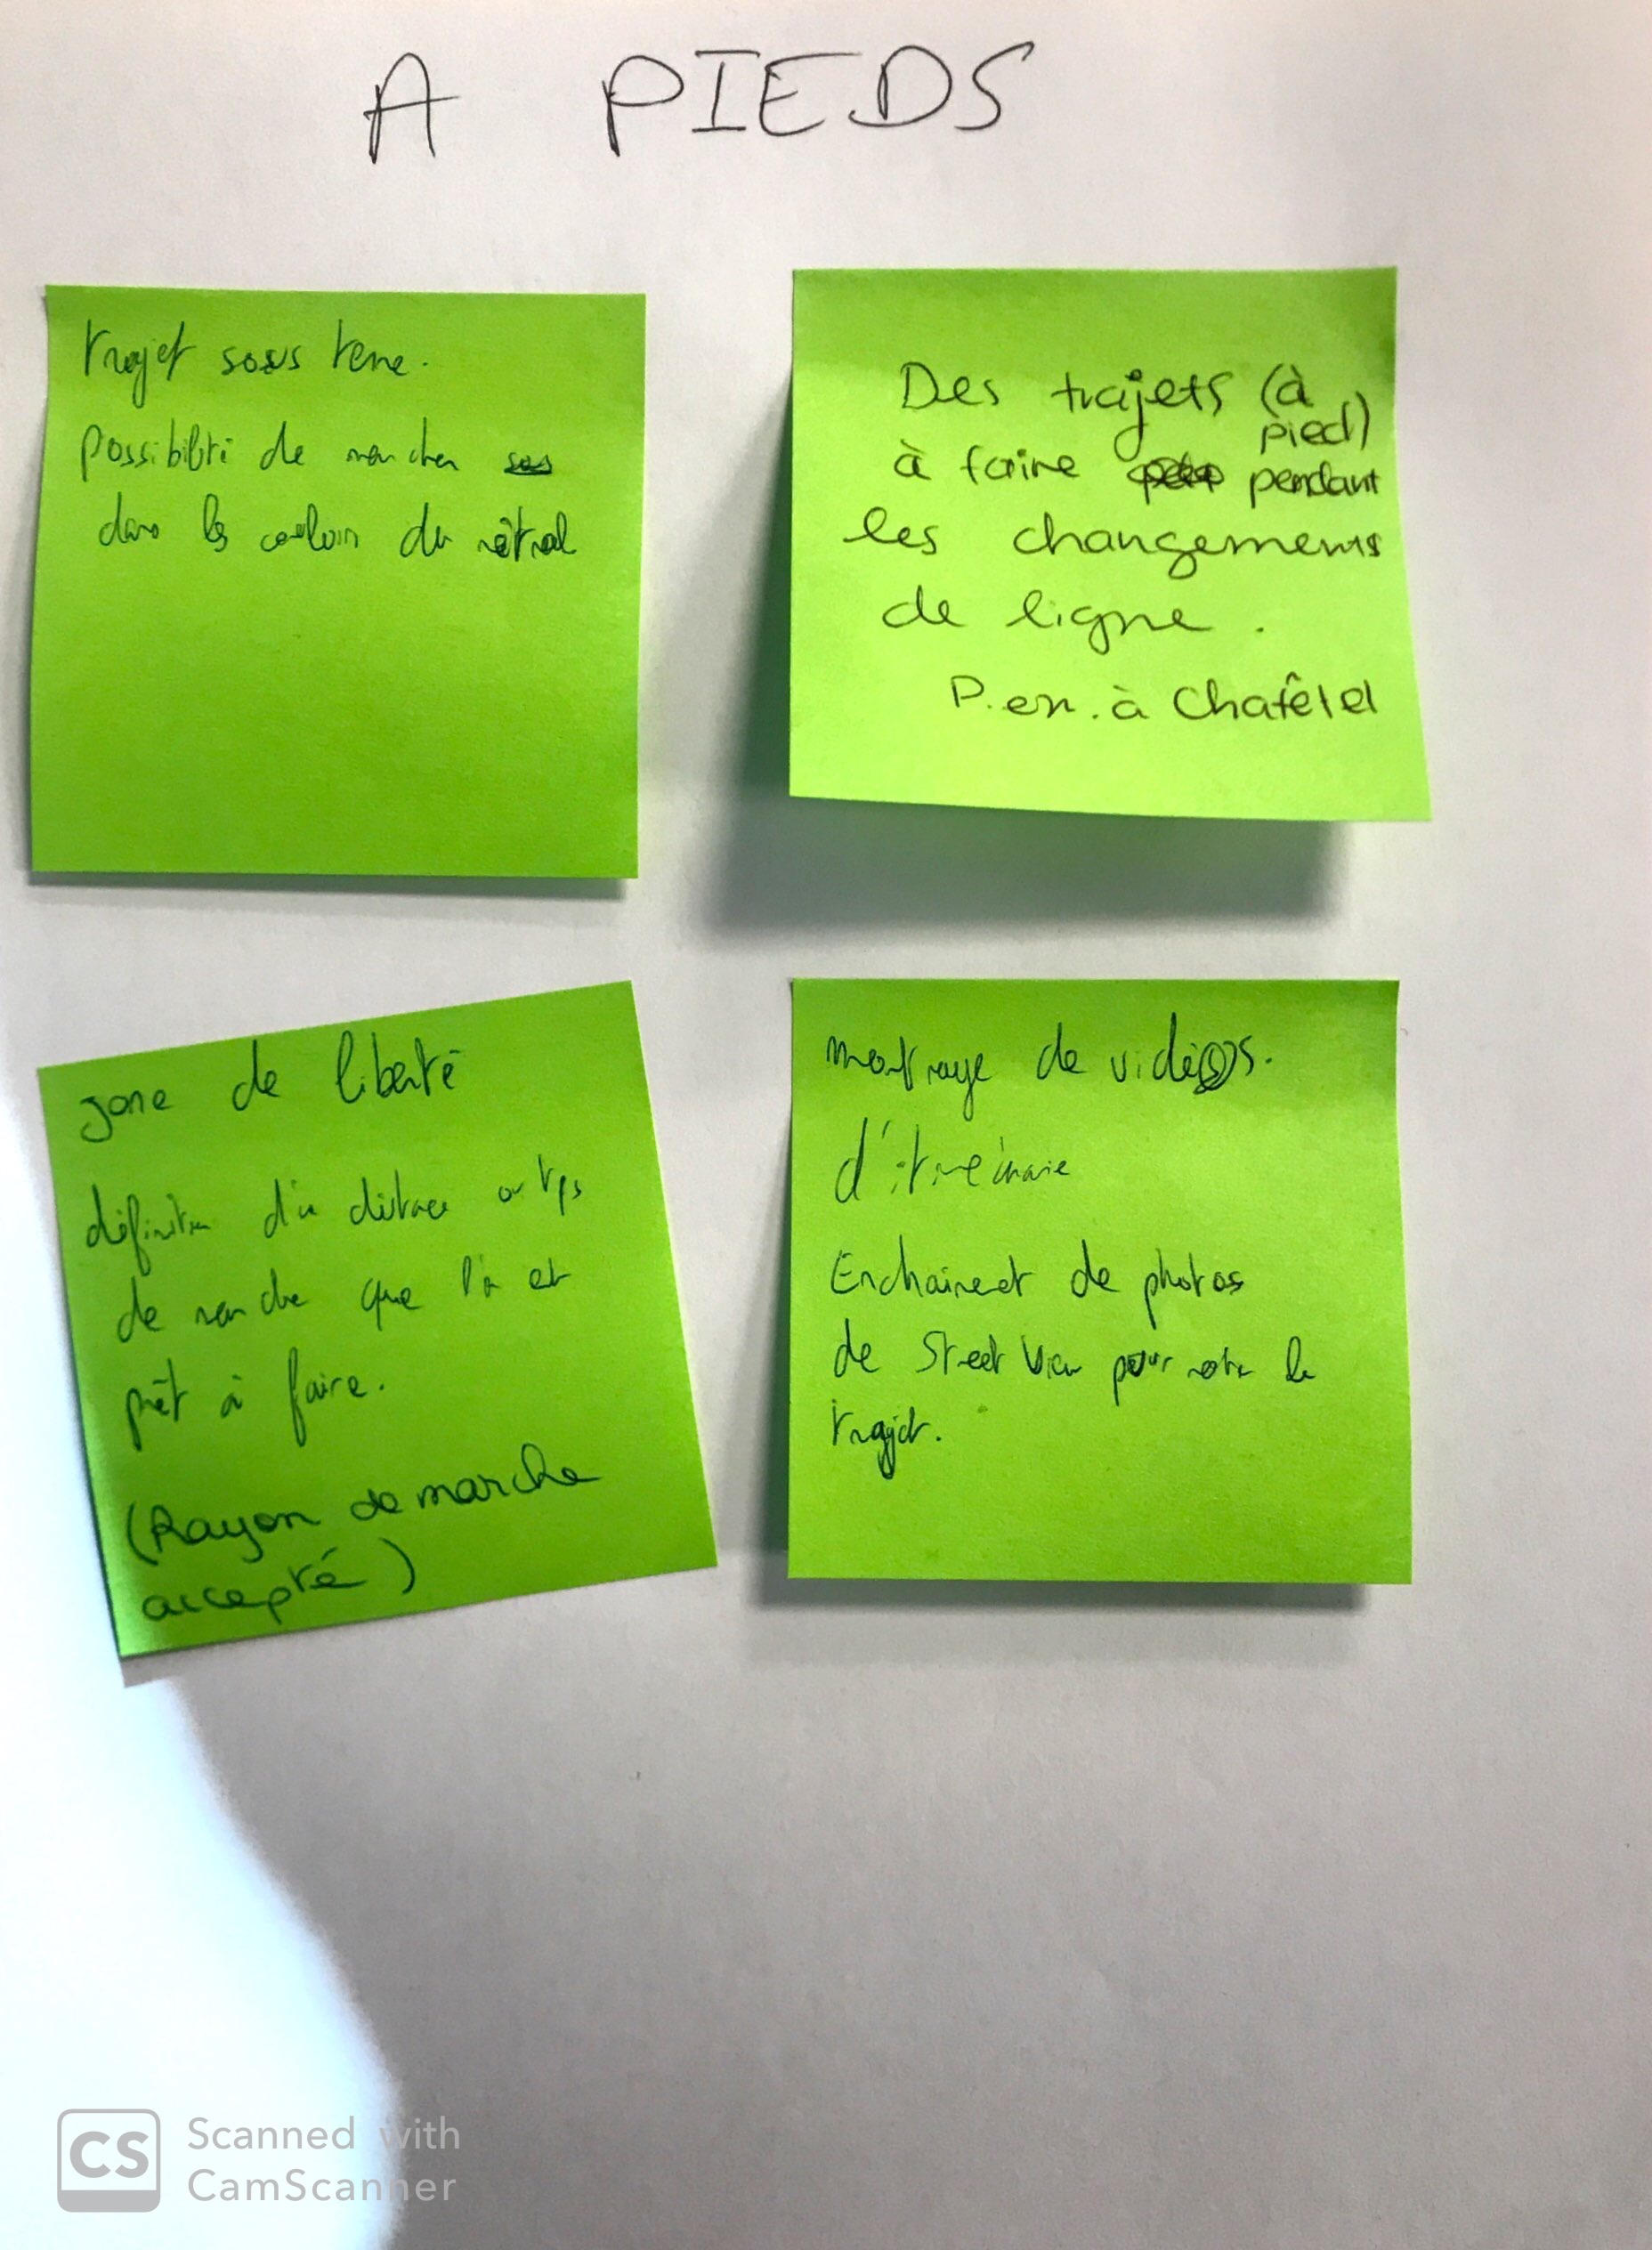 A PIEDS
Trajet sous terre.
possibilité de marcher
dans les couloirs du métro
Des trajets (à
pied)
à faire pendant
les changements
de ligne.
P. ex. à Chatêlet
zone de liberté
définition d'une distance ou tps
de marche que l'on est
prêt à faire.
(Rayon de marche
accepté)
montage de vidéos.
d'itinéraire
Enchainement de photos
de Street View pour le
trajet.
Scanned with
CamScanner
CS